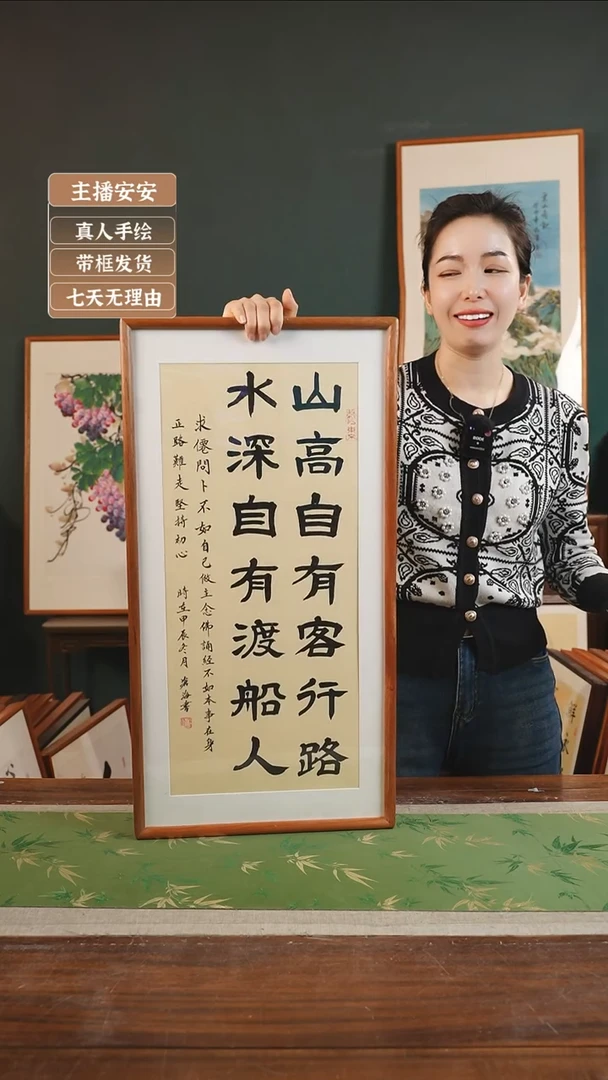 主播安安
真人手绘
带框发货
七天无理由
山高自有客行路
水深自有渡船人
求僊問卜不如自己做主念佛誦經不如本事在身
正路難走堅持初心
時在甲辰冬月